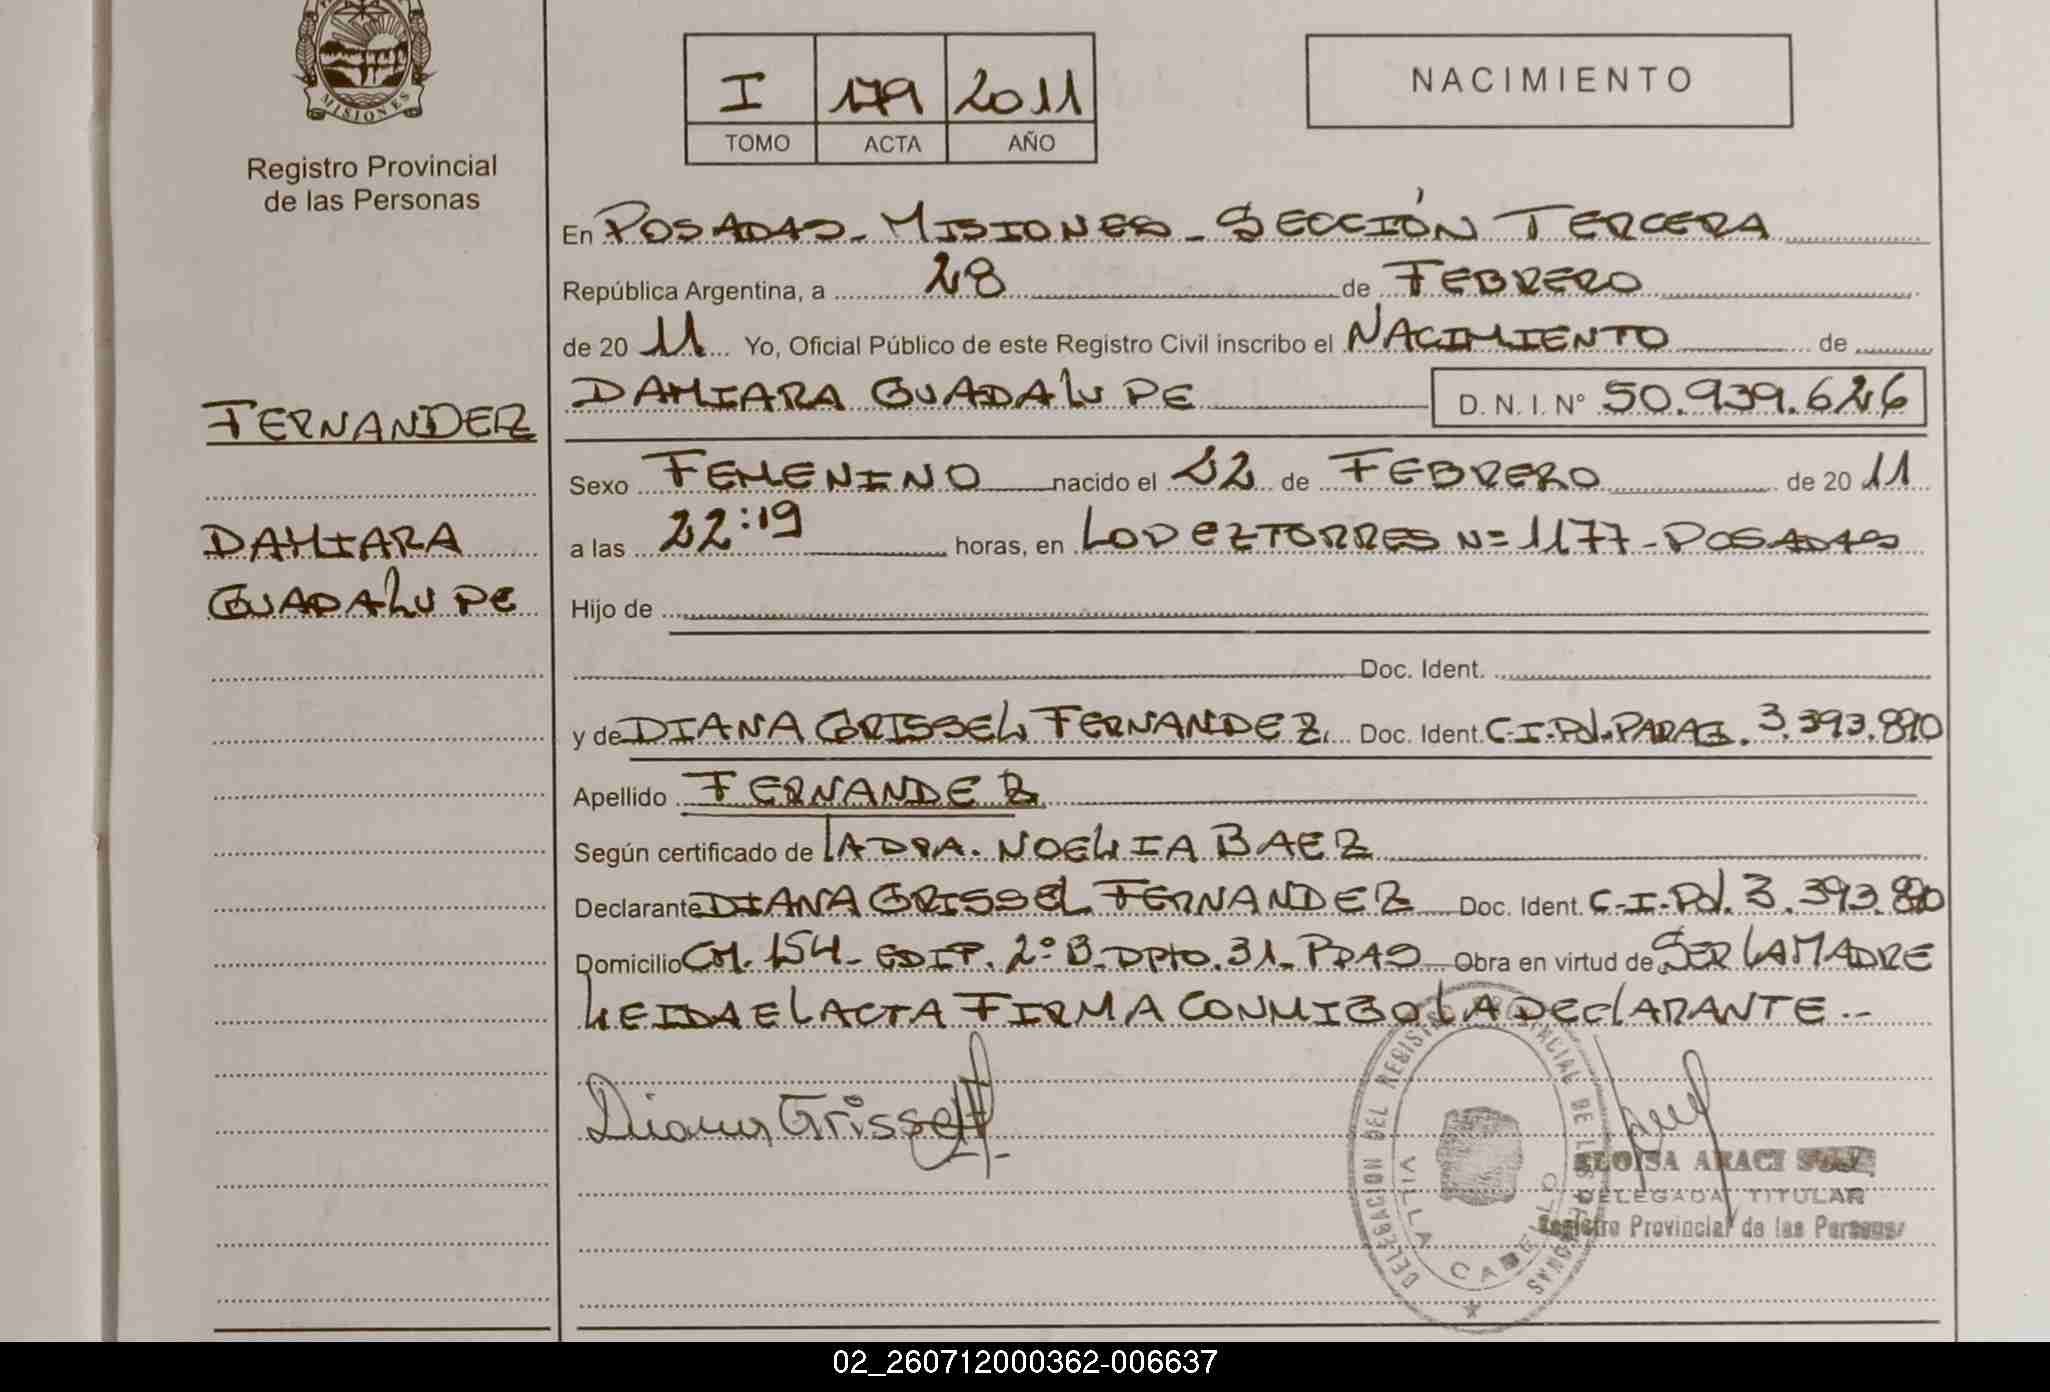 MISIONES
Registro Provincial
de las Personas
I 179 2011
TOMO ACTA AÑO
NACIMIENTO
En POSADAS - MISIONES - SECCIÓN TERCERA
República Argentina, a 28 de FEBRERO
de 20 11 Yo, Oficial Público de este Registro Civil inscribo el NACIMIENTO de
DAMIARA GUADALUPE D. N. I. Nº 50.939.626
FERNANDEZ
Sexo FEMENINO nacido el 22 de FEBRERO de 20 11
DAMIARA
a las 22:19 horas, en LOPEZ TORRES Nº 1177 - POSADAS
GUADALUPE
Hijo de
Doc. Ident.
y de DIANA GRISSEL FERNANDEZ Doc. Ident. C.I.Pol.PARAG. 3.393.890
Apellido FERNANDEZ
Según certificado de LA DRA. NOELIA BAEZ
Declarante DIANA GRISSEL FERNANDEZ Doc. Ident. C.I.Pol. 3.393.890
Domicilio CH. 154 - EDIF. 2º B - DPTO. 31 - PDAS Obra en virtud de SER LA MADRE
LEIDA EL ACTA FIRMA CONMIGO LA DECLARANTE.-
Diana Grissel
DELEGACION DEL REGISTRO PROVINCIAL DE LAS PERSONAS
VILLA CABELLO
ELOISA ARACI
DELEGADA TITULAR
Registro Provincial de las Personas
02_260712000362-006637